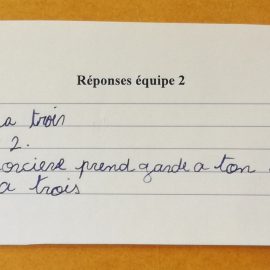 Réponses équipe 2
a trois
2.
sorciere prend garde a ton
a trois